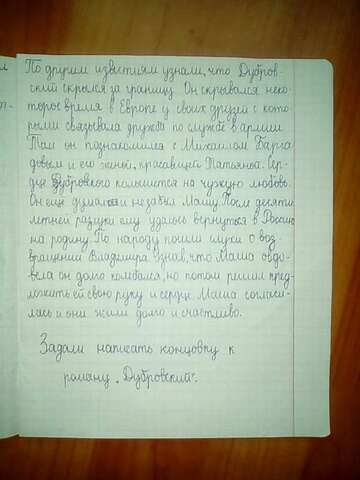 По другим известиям узнали, что Дубров-
ский скрылся за границу. Он скрывался неко-
торое время в Европе у своих друзей с кото-
рыми связывала дружба по службе в армии.
Там он познакомился с Михаилом
и его женой, красавицей Татьяной. Сер-
дце Дубровского на чужую любовь.
Он еще думал и незабыл Машу. После десяти
летней разлуки ему удалось вернуться в Россию
на родину. По народу пошли слухи о воз-
вращении Владимира. Узнав, что Маша овдо-
вела он долго колебался, но потом решил пред-
ложить ей свою руку и сердце. Маша согласи-
лась и они жили долго и счастливо.
Задали написать концовку к
роману „Дубровский".